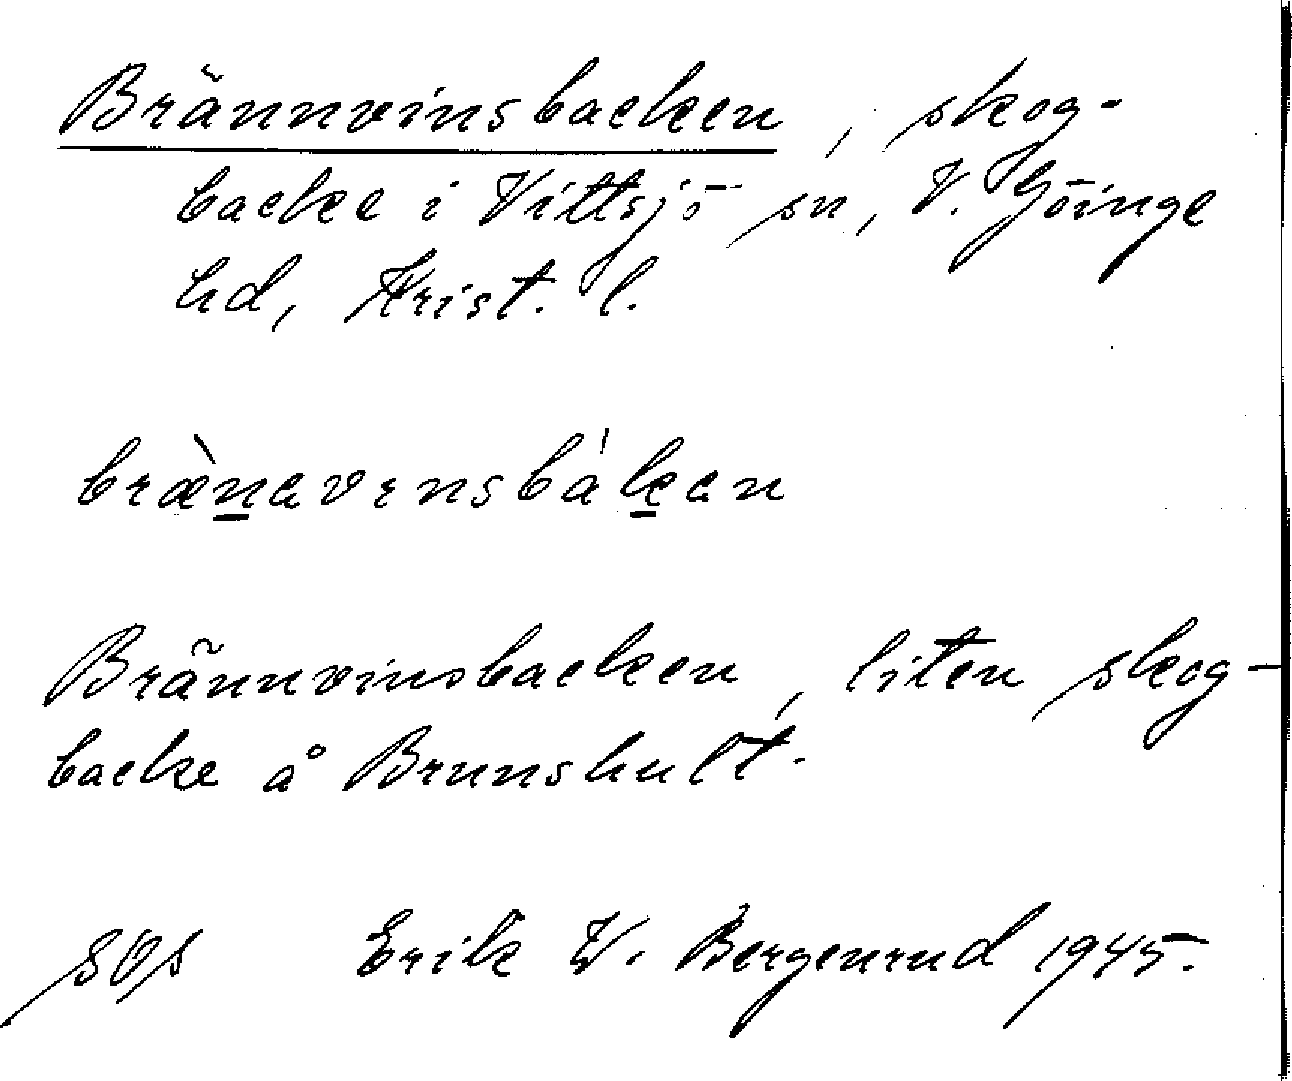 Brännvinsbacken, skog-
backe i Vittsjö sn, V. Göinge
hd, Krist. l.
bræ̀navɪnsbákan
Brännvinsbacken, liten skog-
backe å Brunshult.
Erik W. Bergenrud 1945.